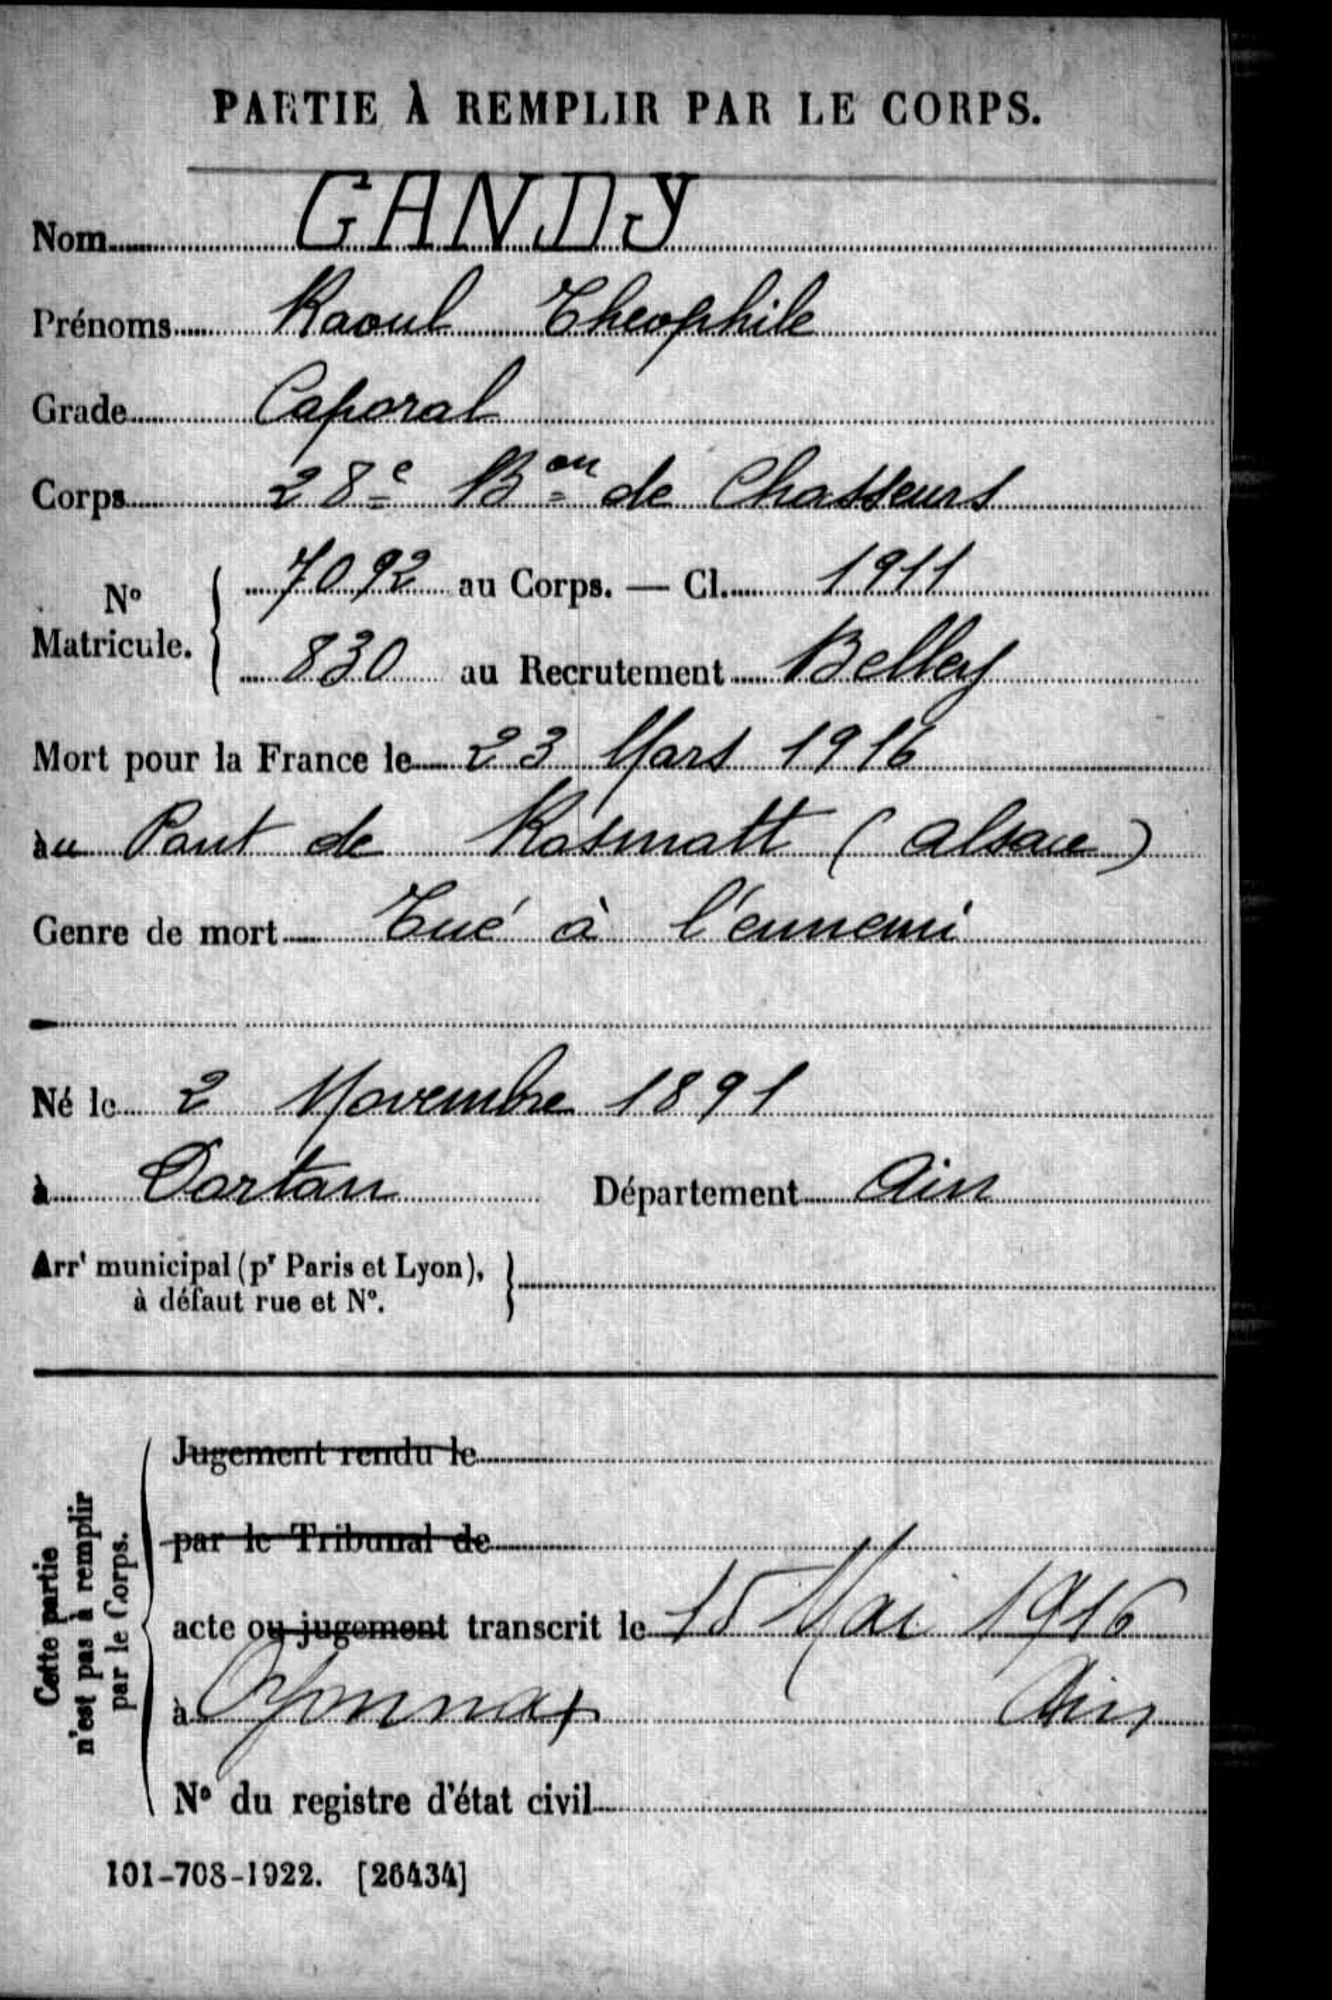 PARTIE À REMPLIR PAR LE CORPS.
Nom GANDY
Prénoms Raoul Théophile
Grade Caporal
Corps 28e Bon de Chasseurs
No Matricule. { 7092 au Corps. — Cl. 1911
830 au Recrutement Belley
Mort pour la France le 23 Mars 1916
au Pont de Kosmatt (Alsace)
Genre de mort Tué à l'ennemi
Né le 2 Novembre 1891
à Dortan Département Ain
Arrt municipal (pr Paris et Lyon), à défaut rue et No. }
Cette partie n'est pas à remplir par le Corps.
Jugement rendu le
par le Tribunal de
acte ou jugement transcrit le 15 Mai 1916
à Oyonnax Ain
No du registre d'état civil
101-708-1922. [26434]